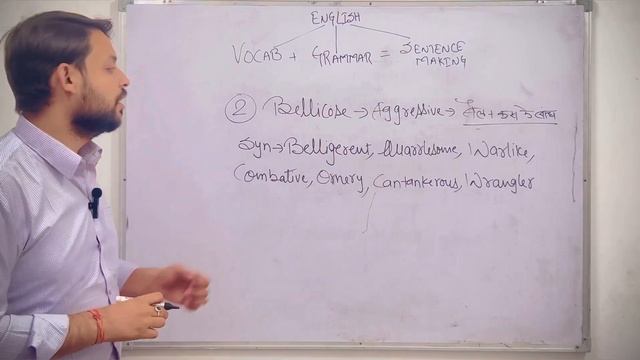 ENGLISH
VOCAB + GRAMMAR = SENTENCE
MAKING
② Bellicose → Aggressive → बैल + के साथ
Syn → Belligerent, Quarrelsome, Warlike,
Combative, Ornery, Cantankerous, Wrangler